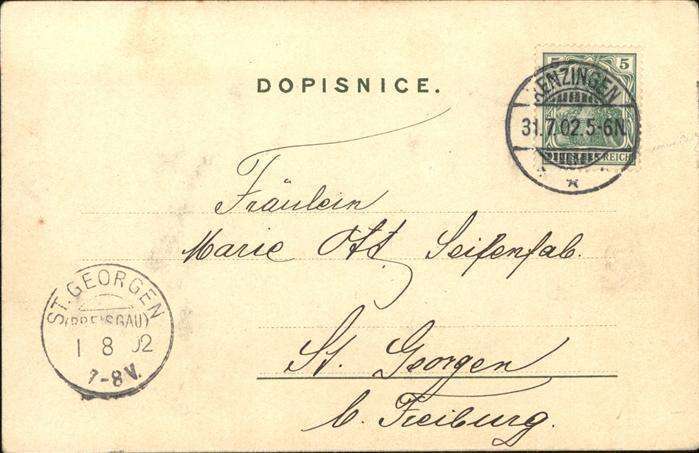 DOPISNICE.
5
KENZINGEN
31.7.02.5-6N.
REICH
Fräulein
Marie Ott Seifenfab.
St. Georgen
b. Freiburg.
ST. GEORGEN
(BREISGAU)
1 8 02
7-8V.